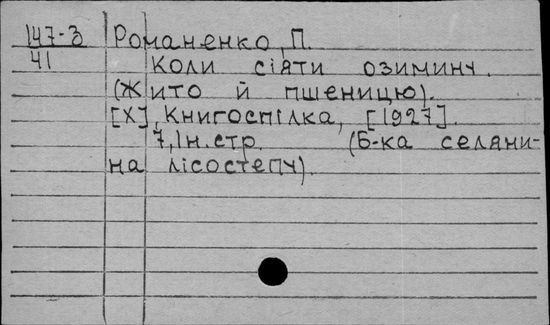 147-3 Романенко, П.
41 Коли сіяти озимину.
(Жито й пшеницю).
[Х], Книгоспілка, [1927].
7,Ін.стр. (Б-ка селяни-
на лісостепу).